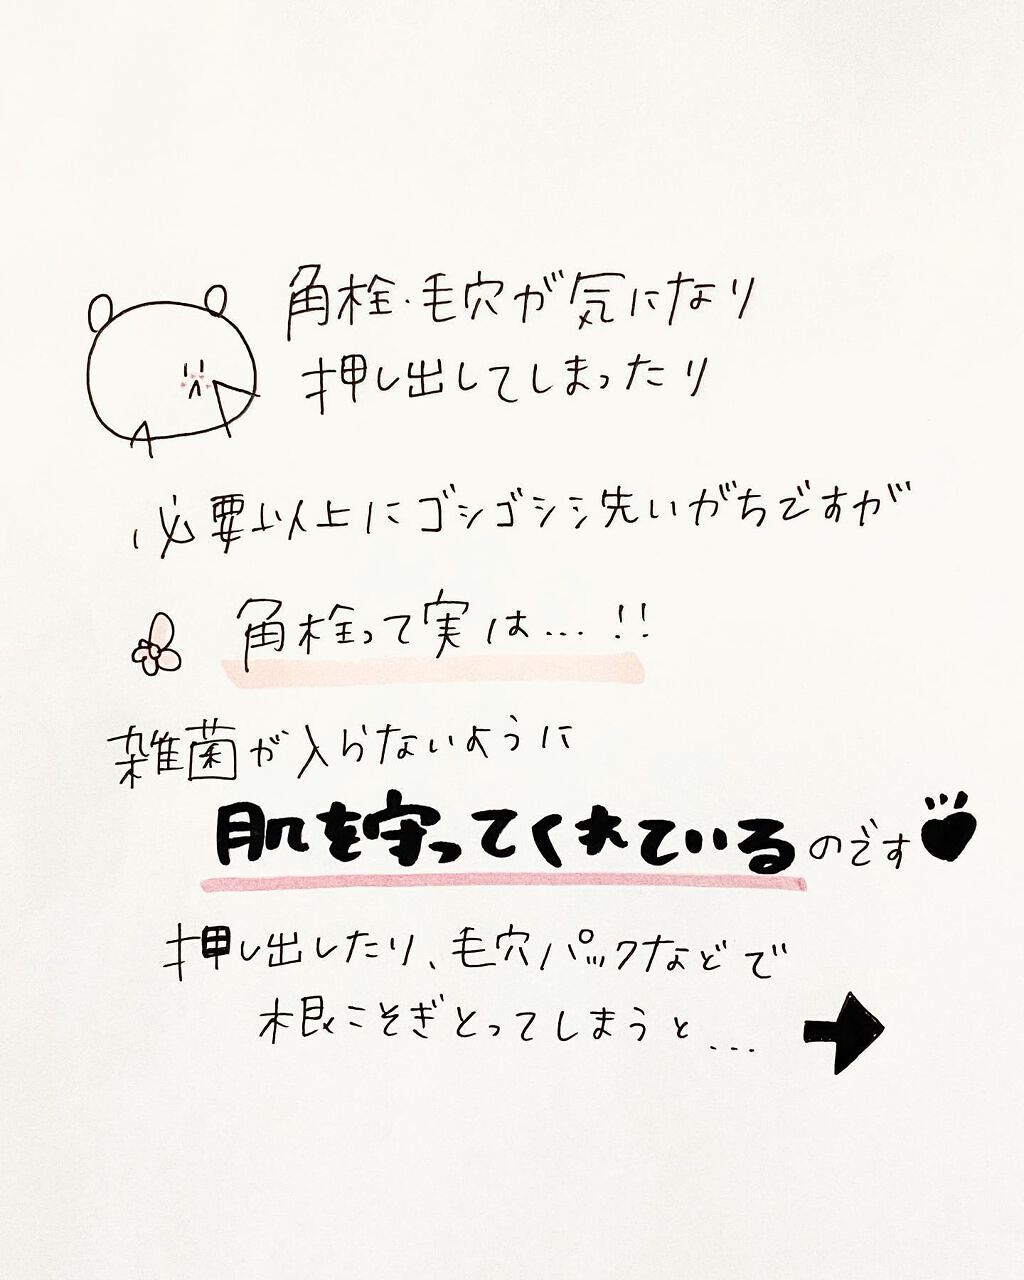 角栓・毛穴が気になり
押し出してしまったり
必要以上にゴシゴシ洗いがちですが
角栓って実は…!!
雑菌が入らないように
肌を守ってくれているのです
押し出したり、毛穴パックなどで
根こそぎとってしまうと...